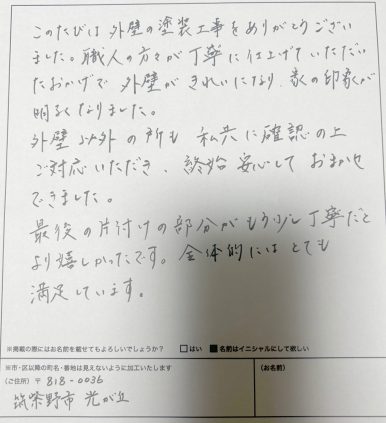 このたびは 外壁の塗装工事をありがとうござい
ました。職人の方々が丁寧に仕上げていただい
たおかげで 外壁がきれいになり、家の印象が
明るくなりました。
外壁以外の所も 私共に確認の上
ご対応いただき、終始安心しておまかせ
できました。
最後の片付けの部分がもう少し丁寧だと
より嬉しかったです。全体的にはとても
満足しています。
※掲載の際にはお名前を載せてもよろしいでしょうか? □はい ■名前はイニシャルにして欲しい
※市・区以降の町名・番地は見えないように加工いたします
(お名前)
(ご住所) 〒 818-0036
筑紫野市 光が丘